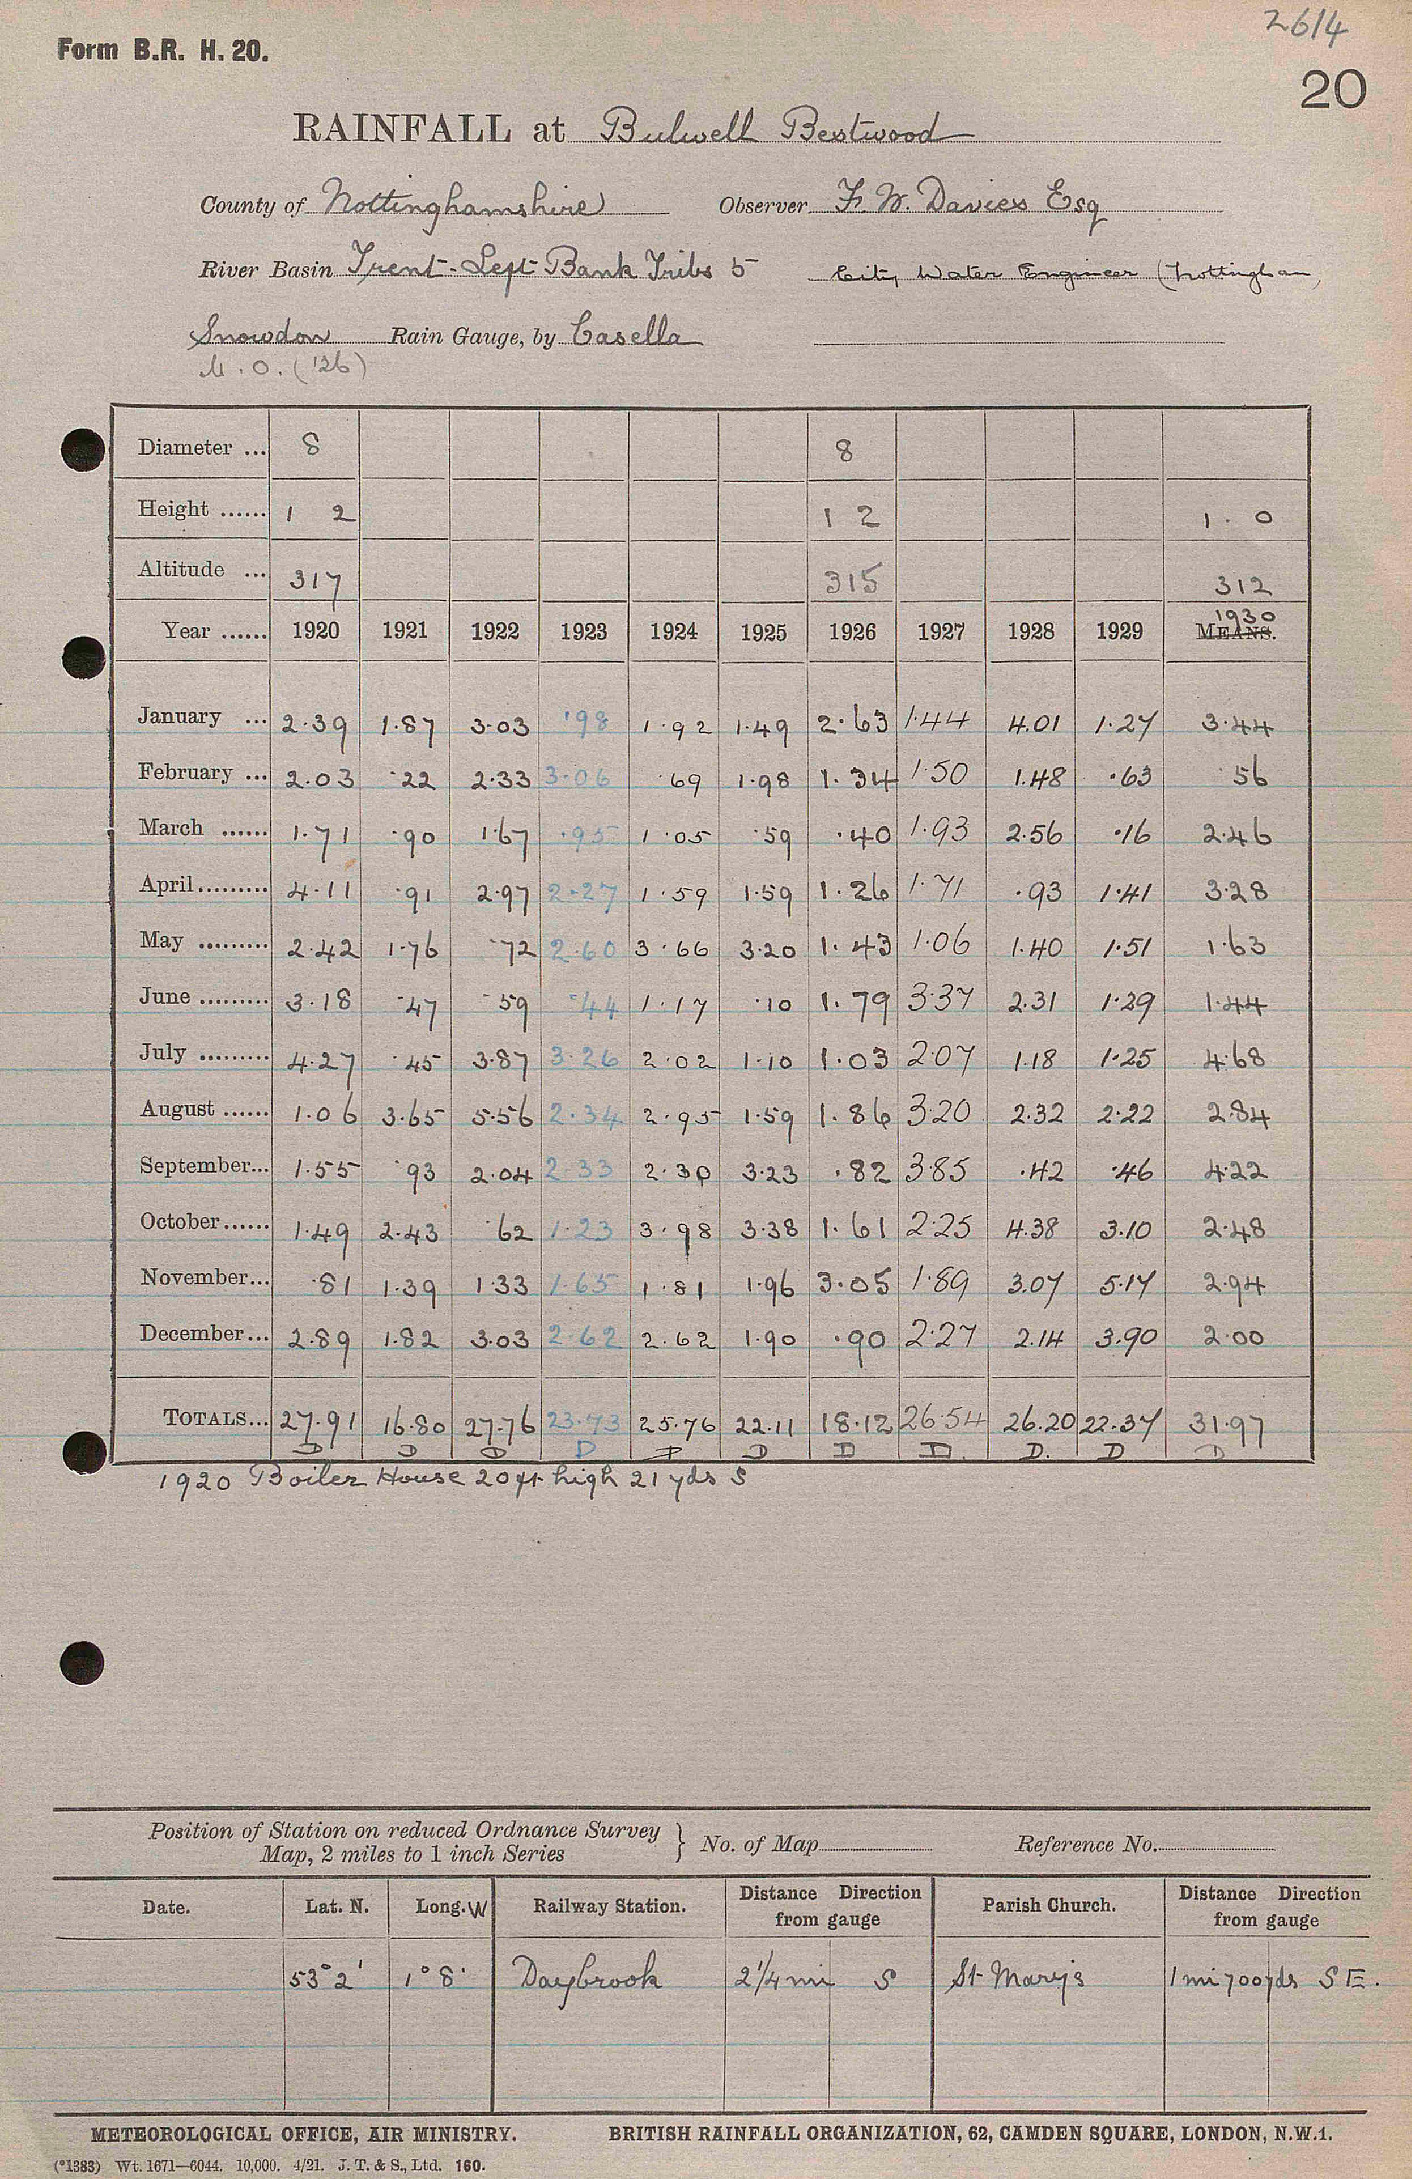 2614
Form B.R. H. 20.
20
RAINFALL at Bulwell Bestwood
County of Nottinghamshire Observer F. W. Davies Esq
River Basin Trent - Left Bank Tribs 5 City Water Engineer (Nottingham)
Snowdon Rain Gauge, by Casella
M.O. ('26)
Diameter ... 8 8
Height ...... 1 2 1 2 1 . 0
Altitude ... 317 315 312
Year ...... 1920 1921 1922 1923 1924 1925 1926 1927 1928 1929 MEANS. 1930
January ... 2.39 1.87 3.03 .98 1.92 1.49 2.63 1.44 4.01 1.27 3.44
February ... 2.03 .22 2.33 3.06 .69 1.98 1.34 1.50 1.48 .63 .56
March ...... 1.71 .90 1.67 .95 1.05 .59 .40 1.93 2.56 .16 2.46
April......... 4.11 .91 2.97 2.27 1.59 1.59 1.26 1.71 .93 1.41 3.28
May ......... 2.42 1.76 .72 2.60 3.66 3.20 1.43 1.06 1.40 1.51 1.63
June ......... 3.18 .47 .59 .44 1.17 .10 1.79 3.37 2.31 1.29 1.44
July ......... 4.27 .45 3.87 3.26 2.02 1.10 1.03 2.07 1.18 1.25 4.68
August ...... 1.06 3.65 5.56 2.34 2.95 1.59 1.86 3.20 2.32 2.22 2.84
September... 1.55 .93 2.04 2.33 2.30 3.23 .82 3.85 .42 .46 4.22
October...... 1.49 2.43 .62 1.23 3.98 3.38 1.61 2.25 4.38 3.10 2.48
November... .81 1.39 1.33 1.65 1.81 1.96 3.05 1.89 3.07 5.17 2.94
December... 2.89 1.82 3.03 2.62 2.62 1.90 .90 2.27 2.14 3.90 2.00
TOTALS... 27.91 16.80 27.76 23.73 25.76 22.11 18.12 26.54 26.20 22.37 31.97
D D D D D D D D D. D D
1920 Boiler House 20ft high 21 yds S
Position of Station on reduced Ordnance Survey
Map, 2 miles to 1 inch Series } No. of Map Reference No.
Date. Lat. N. Long. W Railway Station. Distance Direction from gauge Parish Church. Distance Direction from gauge
53° 2' 1° 8' Daybrook 2 1/4 mi S St Mary's 1 mi 700 yds S E.
METEOROLOGICAL OFFICE, AIR MINISTRY. BRITISH RAINFALL ORGANIZATION, 62, CAMDEN SQUARE, LONDON, N.W.1.
(*1383) Wt. 1671—6044. 10,000. 4/21. J. T. & S., Ltd. 160.